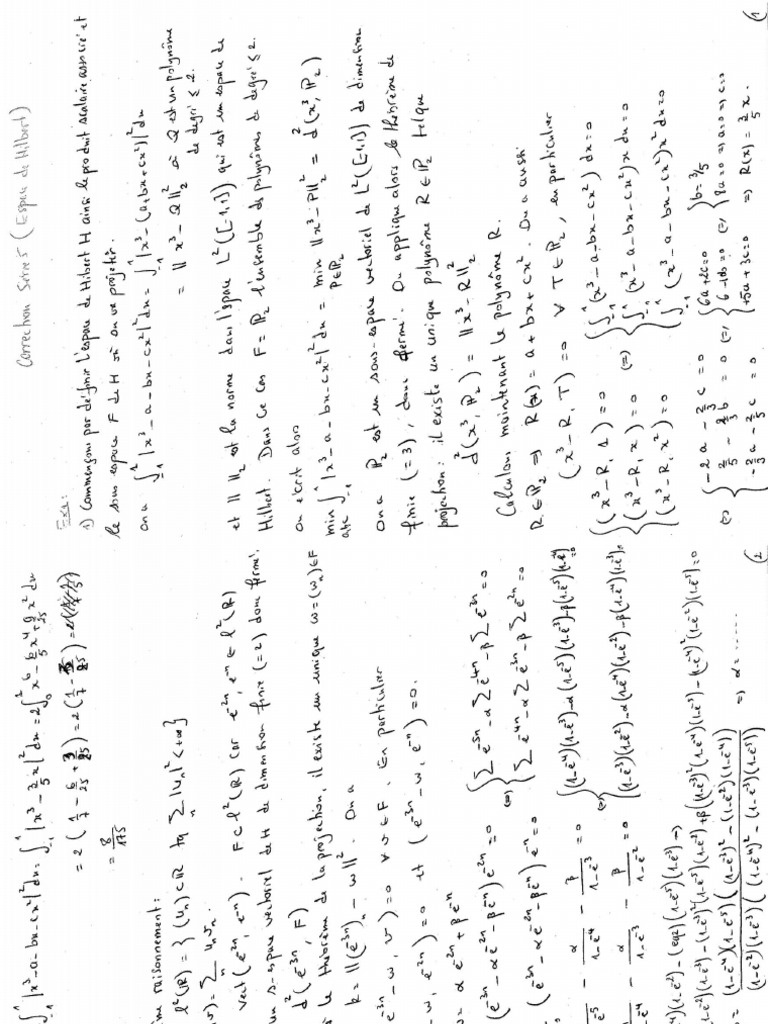 Correction Série 5 (Espace de Hilbert)
Exo:
1) Commençons par définir l'espace de Hilbert H ainsi le produit scalaire associé et
le sous espace F de H où on va projeter.
on a ∫_{-1}^{1} |x³-a-bx-cx²|² dx = ∫_{-1}^{1} |x³-(a+bx+cx²)|² dx
= ‖x³-Q‖₂² où Q est un polynôme
de degré ≤ 2.
et ‖ ‖₂ est la norme dans l'espace L²([-1,1]) qui est un espace de
Hilbert. Dans ce cas F = P₂ l'ensemble de polynômes de degré ≤ 2.
on écrit alors
min ∫_{-1}^{1} |x³-a-bx-cx²|² dx = min ‖x³-P‖₂² = d²(x³, P₂)
a,b,c P∈P₂
on a P₂ est un sous-espace vectoriel de L²([-1,1]) de dimension
finie (=3), donc fermé. On applique alors le théorème de
projection: il existe un unique polynôme R ∈ P₂ tel que
d²(x³, P₂) = ‖x³-R‖₂²
Calculons maintenant le polynôme R.
R ∈ P₂ ⇒ R(x) = a+bx+cx². On a aussi
(x³-R, T) = 0 ∀ T ∈ P₂, en particulier
{ (x³-R, 1) = 0 { ∫_{-1}^{1} (x³-a-bx-cx²) dx = 0
(x³-R, x) = 0 (=) ∫_{-1}^{1} (x³-a-bx-cx²) x dx = 0
(x³-R, x²) = 0 ∫_{-1}^{1} (x³-a-bx-cx²) x² dx = 0
(=) { -2a - 2/3 c = 0 { 6a+2c=0 { b=3/5
2/5 - 2/3 b = 0 (=) 6-10b=0 (=) 8a=0 => a=0 => c=0
-2/3 a - 2/5 c = 0 +5a+3c=0 => R(x) = 3/5 x.
(1
∫_{-1}^{1} |x³-a-bx-cx²|² dx = ∫_{-1}^{1} |x³ - 3/5 x|² dx = 2∫_0^1 x⁶ - 6/5 x⁴ + 9/25 x² dx
= 2 (1/7 - 6/25 + 3/25) = 2 (1/7 - 3/25)
= 8/175
me raisonnement:
l²(R) = { (u_n) ⊂ R tq Σ|u_n|² < +∞}
v) = Σ u_n v_n.
Vect (e^{-2n}, e^{-n}). F ⊂ l²(R) car e^{-2n}, e^{-n} ∈ l²(R)
un s-espace vectoriel de H de dimension finie (=2) donc fermé.
d²(e^{-3n}, F)
le théorème de la projection, il existe un unique w=(w_n) ∈ F
k = ‖(e^{-3n})_n - w‖². On a
e^{-3n} - w, v) = 0 ∀ v ∈ F. En particulier
- w, e^{-2n}) = 0 et (e^{-3n} - w, e^{-n}) = 0.
w = α e^{-2n} + β e^{-n}
(e^{-3n} - αe^{-2n} - βe^{-n}) e^{-2n} = 0 (=) { Σ e^{-5n} - α Σ e^{-4n} - β Σ e^{-3n} = 0
(e^{-3n} - αe^{-2n} - βe^{-n}) e^{-n} = 0 Σ e^{-4n} - α Σ e^{-3n} - β Σ e^{-2n} = 0
- α/(1-e^{-4}) - β/(1-e^{-3}) = 0 (=) { (1-e^{-4})(1-e^{-3}) - α (1-e^{-5})(1-e^{-3}) - β(1-e^{-5})(1-e^{-4}) = 0
- α/(1-e^{-3}) - β/(1-e^{-2}) = 0 (1-e^{-3})(1-e^{-2}) - α(1-e^{-4})(1-e^{-2}) - β(1-e^{-4})(1-e^{-3})
=> α = ......
(2